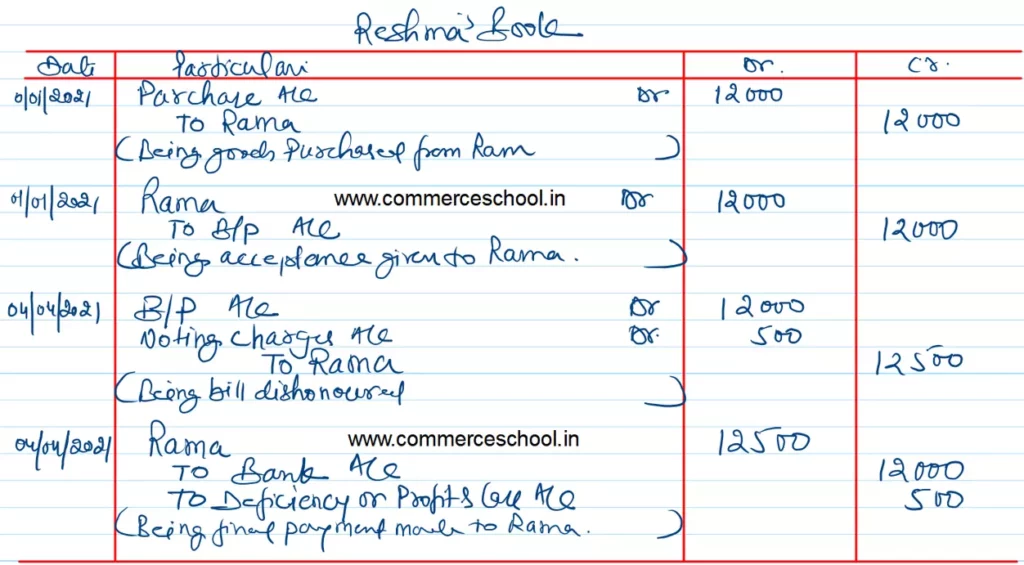 Reshma's Book
Date Particulars Dr. Cr.
01/01/2021 Purchase A/c Dr 12000
To Rama 12000
(Being goods Purchased from Ram)
01/01/2021 Rama www.commerceschool.in Dr 12000
To B/P A/c 12000
(Being acceptance given to Rama.)
04/04/2021 B/P A/c Dr 12000
Noting Charges A/c Dr. 500
To Rama 12500
(Being bill dishonoured)
04/04/2021 Rama www.commerceschool.in 12500
To Bank A/c 12000
To Deficiency or Profit & Loss A/c 500
(Being final payment made to Rama.)